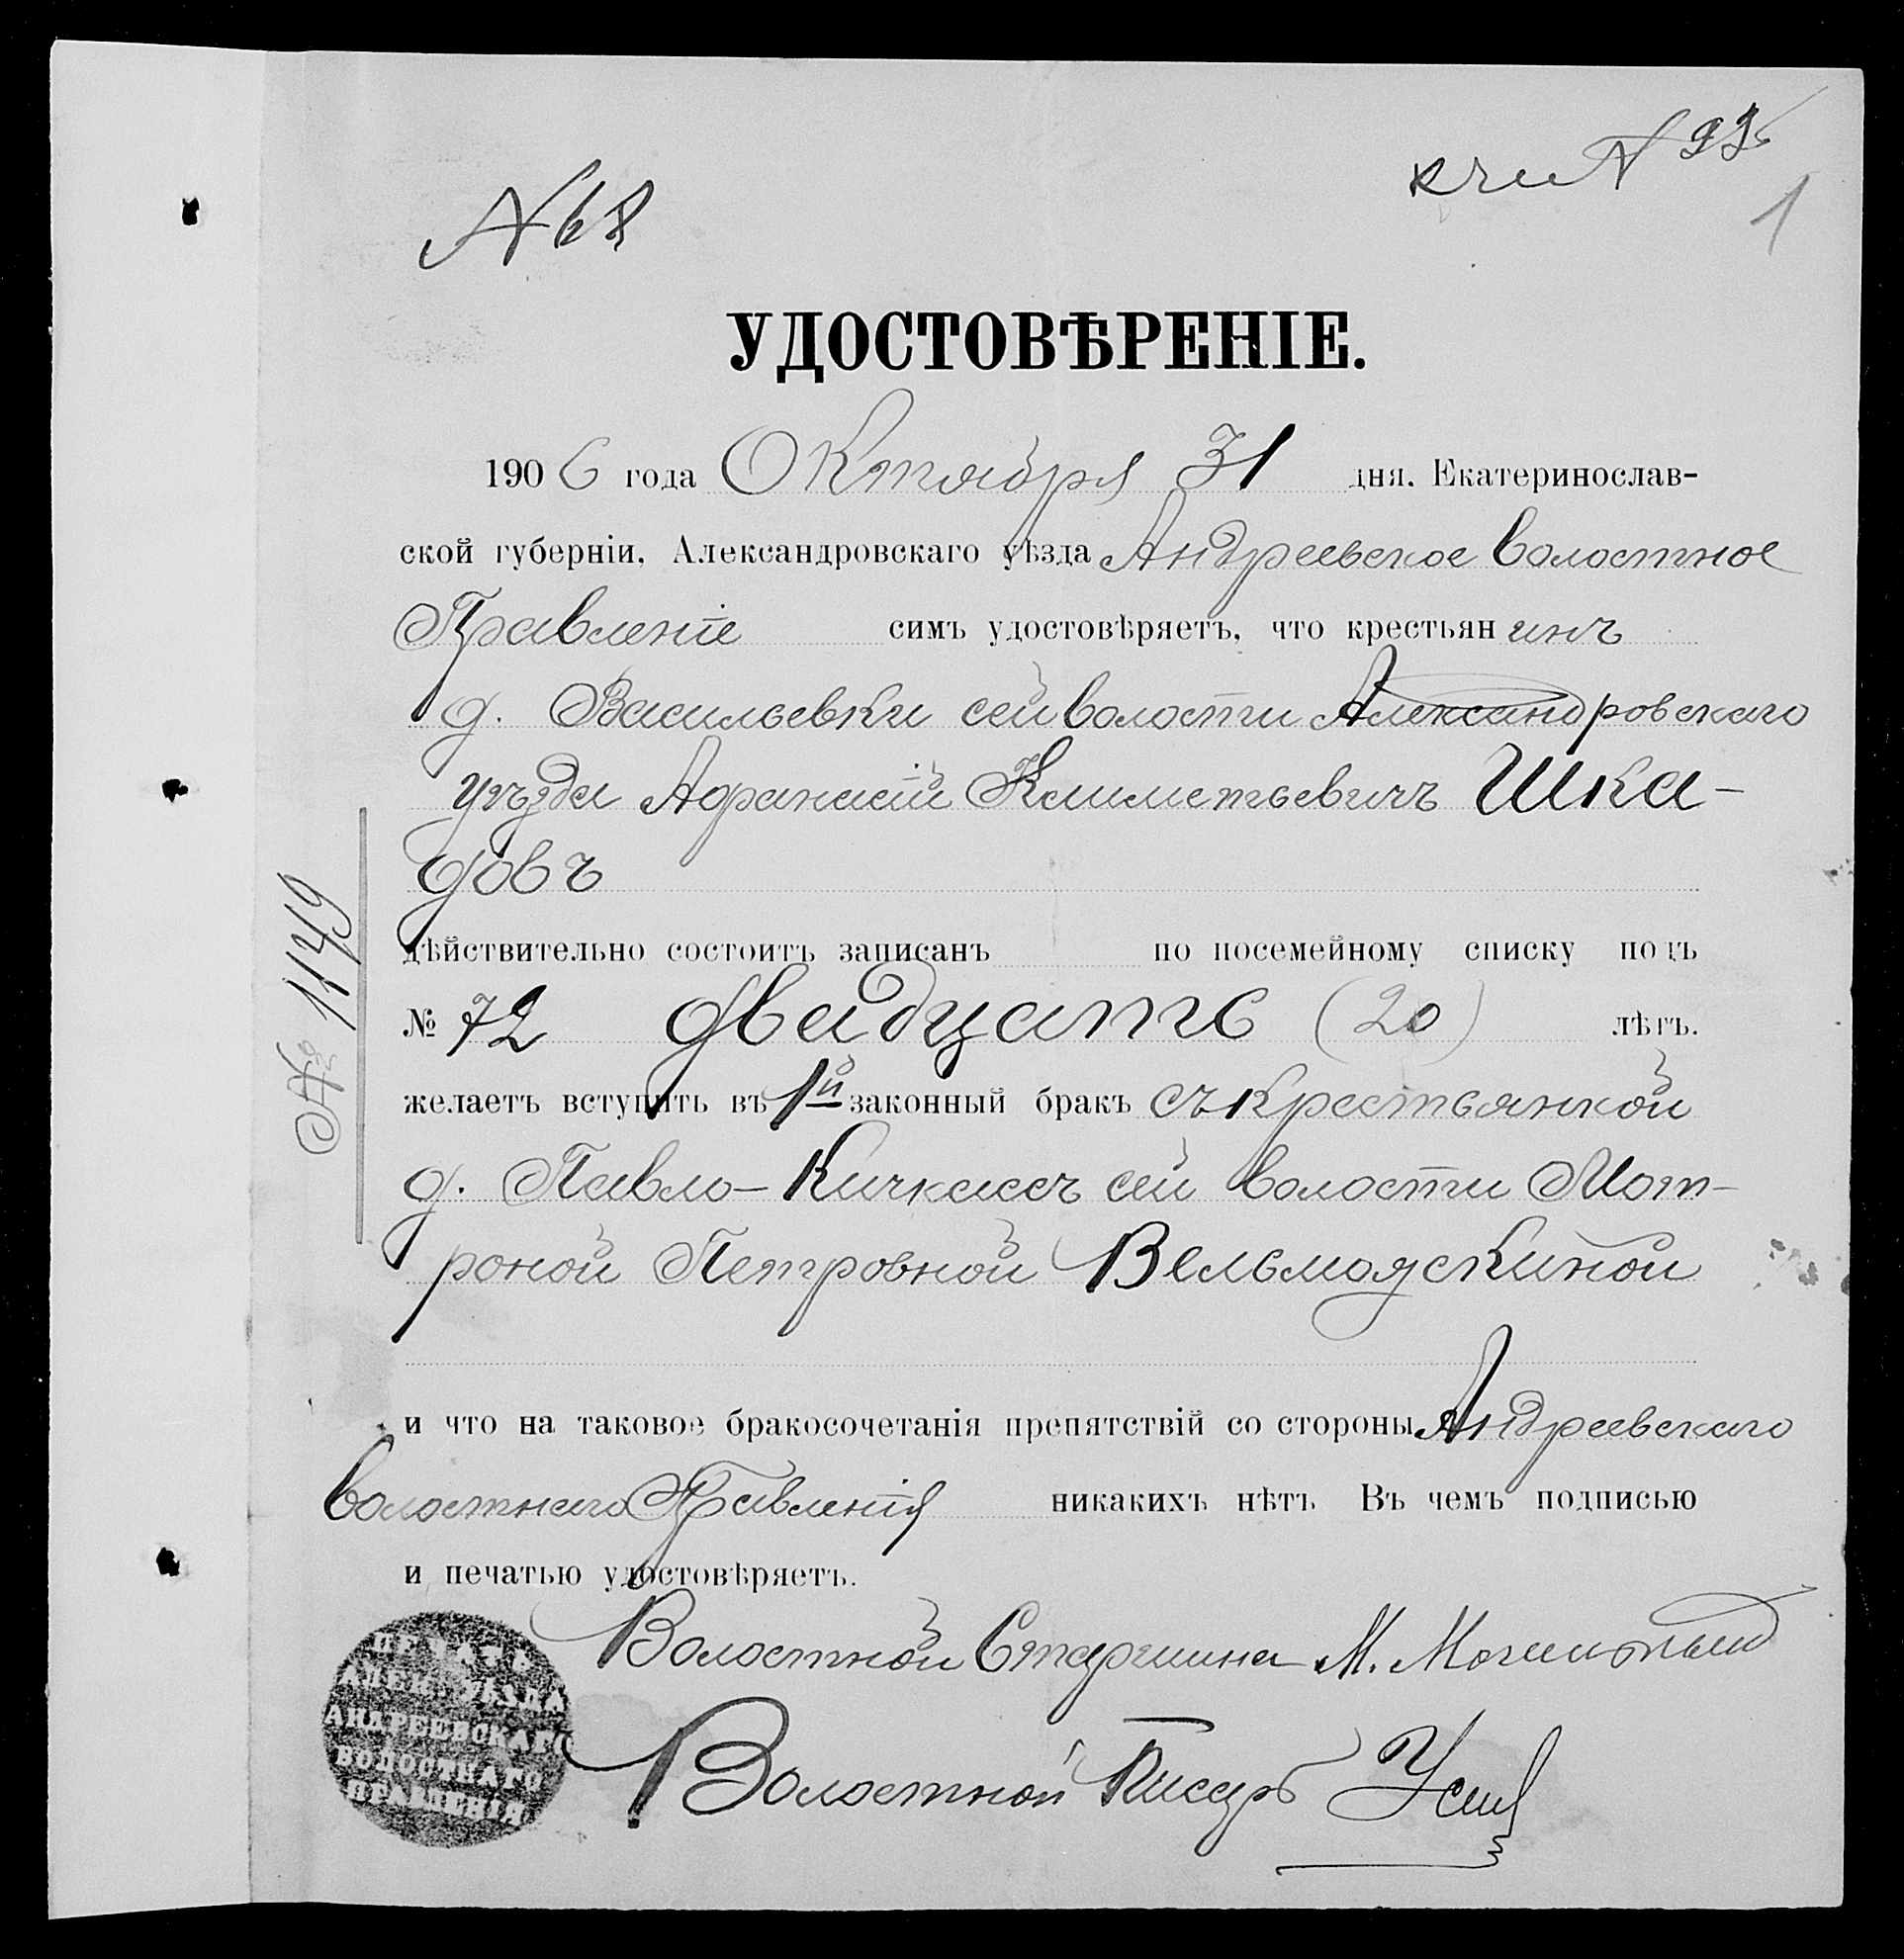 к № 93
№ 68
1
УДОСТОВѢРЕНІЕ.
1906 года Октября 31 дня. Екатеринослав-
ской губерніи, Александровскаго уѣзда Андреевское Волостное
Правленіе симъ удостовѣряетъ, что крестьянинъ
д. Васильевки сей волости Александровскаго
уѣзда Афанасій Климетьевичъ Шка-
довъ
дѣйствительно состоитъ записанъ по посемейному списку подъ
№ 72 двадцать (20) лѣтъ.
желаетъ вступить въ 1й законный бракъ съ крестьянкой
д. Павло-Кичкасъ сей волости Мот-
роной Петровной Вельмояскиной
и что на таковое бракосочетанія препятствій со стороны Андреевскаго
Волостнаго Правленія никакихъ нѣтъ Въ чемъ подписью
и печатью удостовѣряетъ.
Волостной Старшина М.
Волостной Писарь
ПЕЧАТЬ
АЛЕК. УѢЗДА
АНДРЕЕВСКАГО
ВОЛОСТНАГО
ПРАВЛЕНІЯ
№ 1149